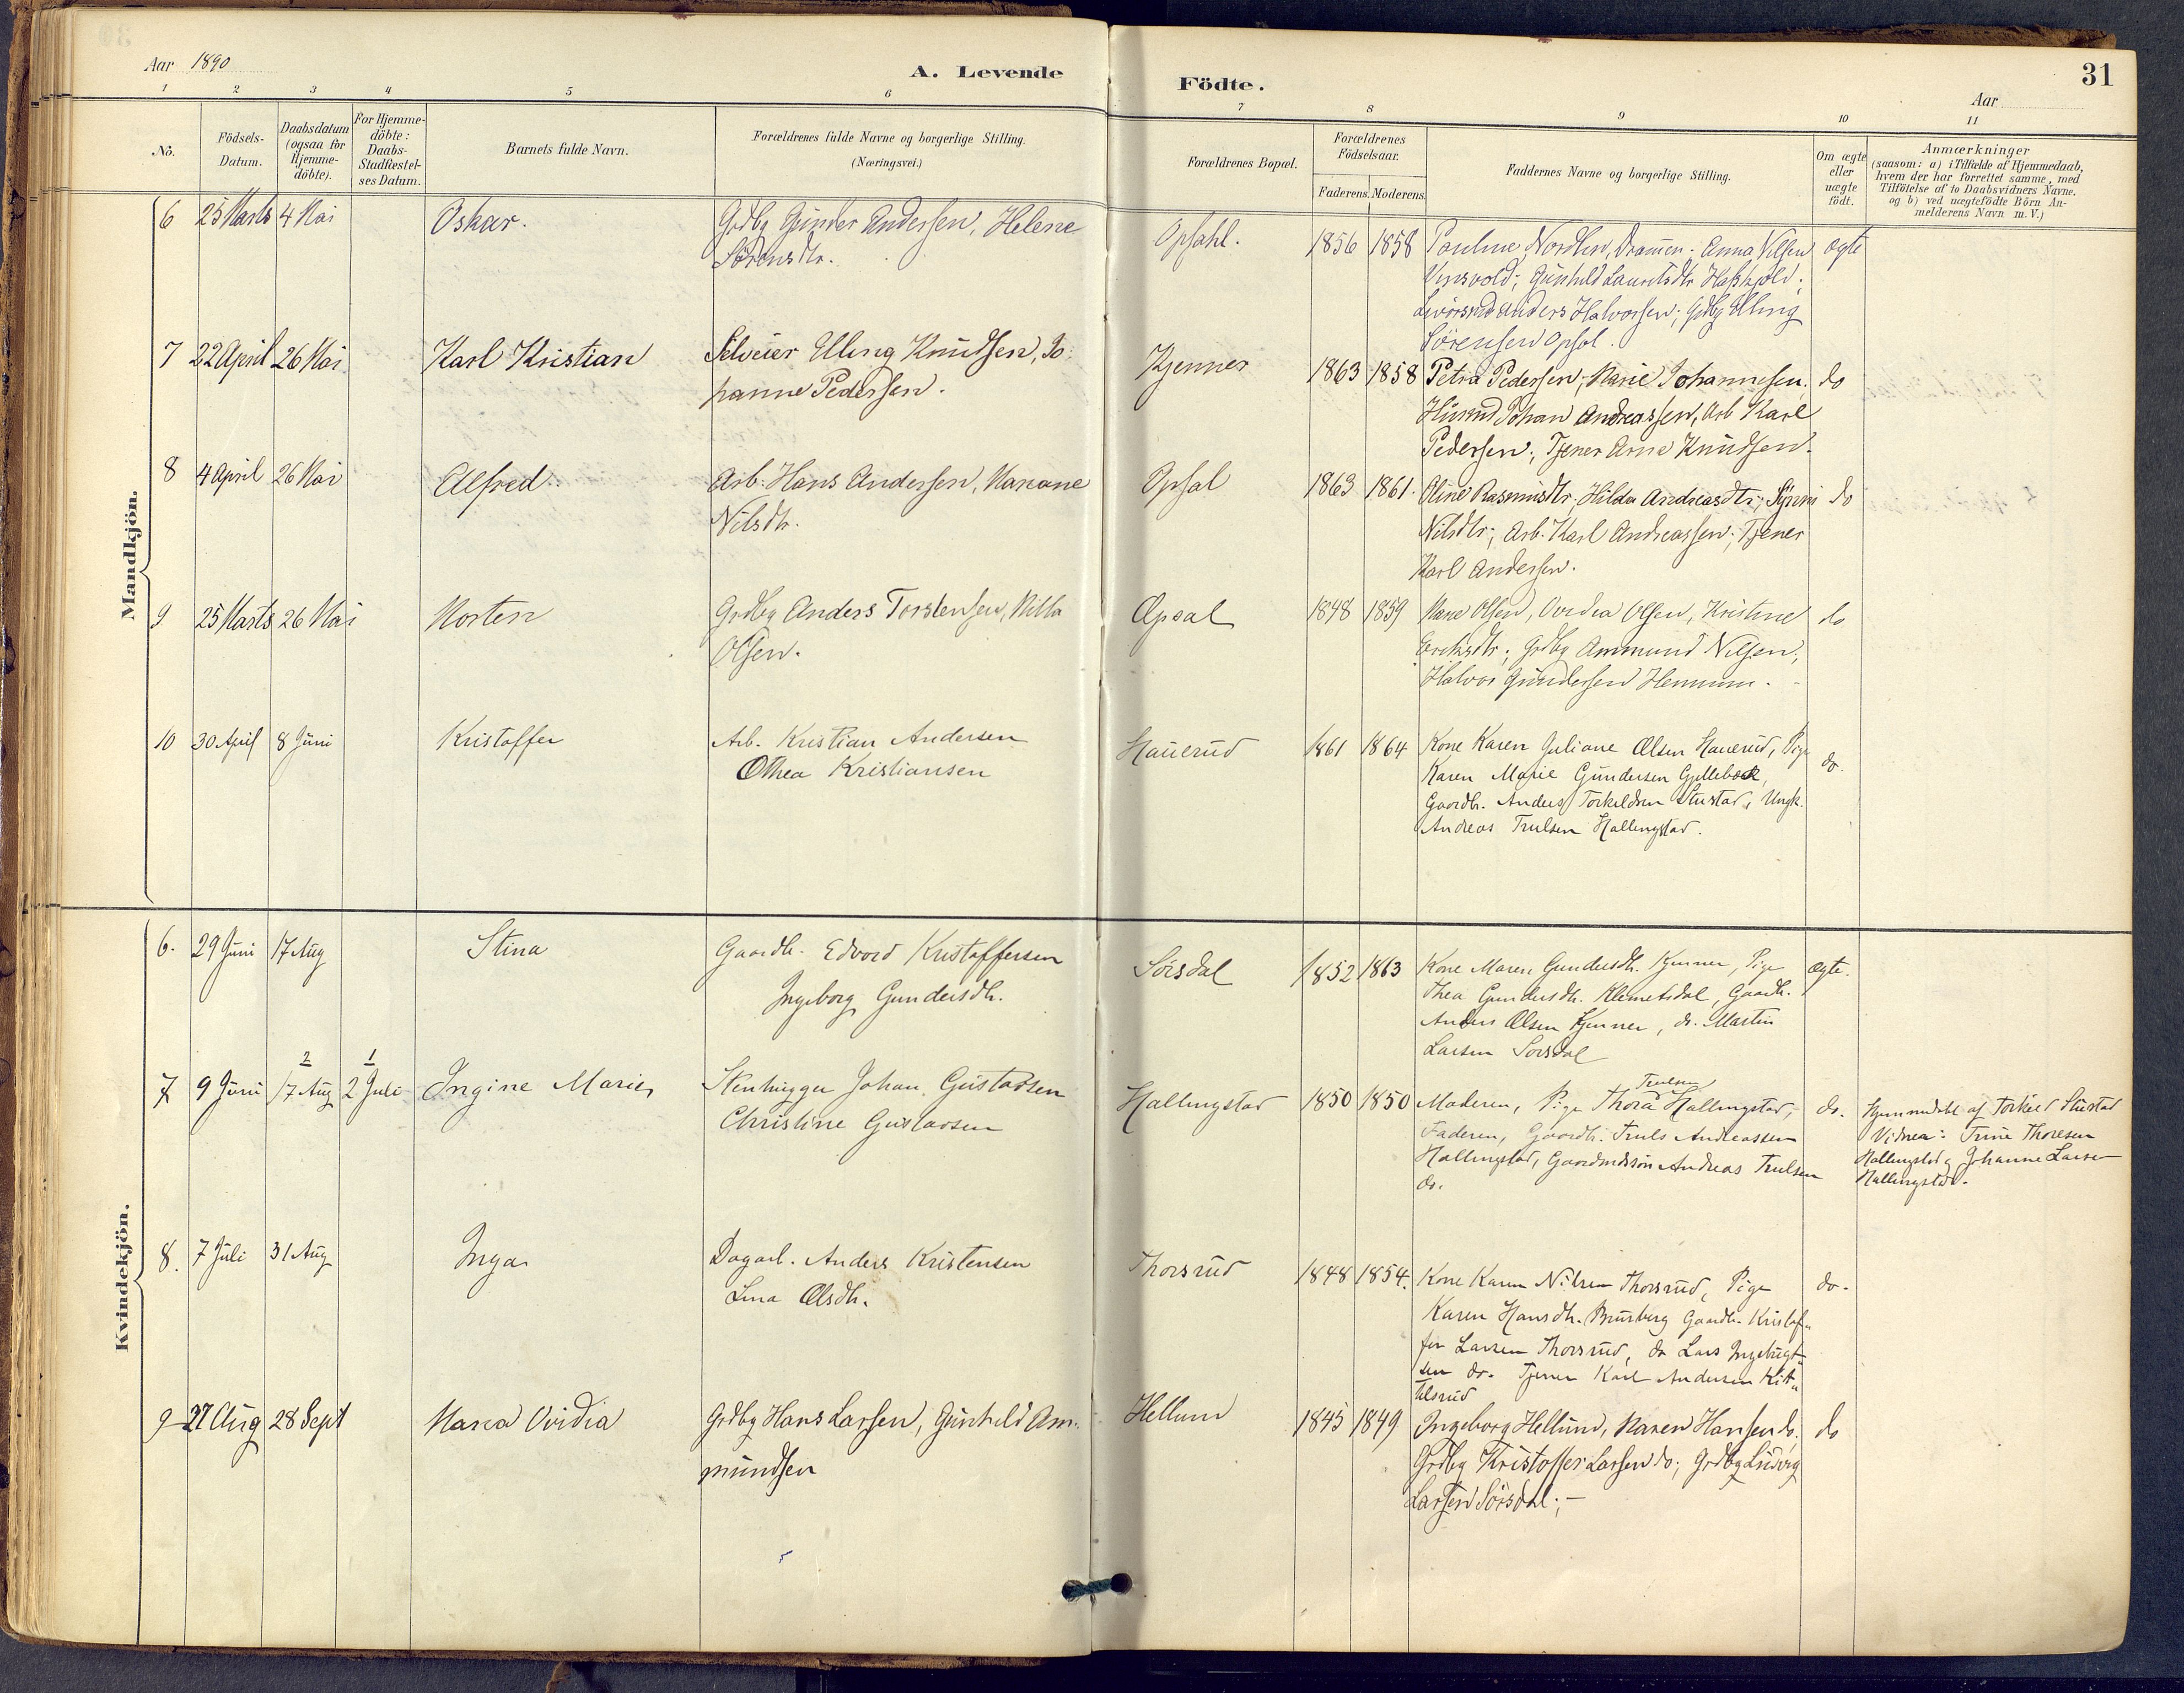 Aar 1890
A. Levende
Födte.
31
Aar
1 2 3 4 5 6 7 8 9 10 11
No.
Födsels-Datum.
Daabsdatum (ogsaa for Hjemme-döbte).
For Hjemme-döbte: Daabs-Stadfæstel-ses Datum.
Barnets fulde Navn.
Forældrenes fulde Navne og borgerlige Stilling.
(Næringsvei.)
Forældrenes Bopæl.
Forældrenes Födselsaar.
Faderens. Moderens.
Faddernes Navne og borgerlige Stilling.
Om ægte eller uægte födt.
Anmærkninger
(saasom: a) i Tilfælde af Hjemmedaab,
hvem der har forrettet samme, med
Tilföielse af to Daabsvidners Navne,
og b) ved uægtefödte Börn An-
melderens Navn m. V.)
Mandkjön.
6 25 Marts 4 Mai Oskar. Grdbg Gunder Andersen, Helene
Sörensdtr.
Opsahl. 1856 1858 Pauline Nordlien, Drammen; Anna Nilsen ægte
Gunhild Lauritsdtr
Anders Halvorsen; Grdbg Elling
Sörensen Opsal.
7 22 April 26 Mai Karl Kristian Selveier Elling Knudsen, Jo-
hanne Pedersen.
Kjenner 1863 1858 Petra Pedersen, Marie Johannesen, do
Husmd Johan Andreassen, Arb Karl
Pedersen; Tjener Arne Knudsen.
8 4 April 26 Mai Alfred Arb. Hans Andersen, Mariane
Nilsdtr.
Opsal 1863 1861. Oline Rasmusdtr, Hilda Andreasdtr; do
Nilsdtr; Arb. Karl Andreassen; Tjener
Karl Andersen.
9 25 Marts 26 Mai Morten Grdbg Anders Torstensen, Milla
Olsen.
Opsal 1848 1859 Marie Olsen, Ovidia Olsen, Kristine do
Eriksdtr; Grdbg Ammund Nilsen;
Halvor Gundersen Hennum.
10 30 April 8 Juni Kristoffer Arb. Kristian Andersen
Othea Kristiansen
Hauerud 1861 1864 Kone Karen Juliane Olsen Hauerud, Pige do.
Karen Marie Gundersen Gjellebæk,
Gaardb. Anders Torkildsen Stustad, Ungk.
Andreas Trulsen Hallingstad.
Kvindekjön.
6. 29 Juni 17 Aug Stina Gaardb. Edvard Kristoffersen
Ingeborg Gundersdtr.
Sörsdal 1852 1863 Kone Maren Gundersdtr. Kjenner, Pige ægte.
Thea Gundersdtr. Klemetsdal, Gaardb.
Anders Olsen Kjenner, do. Martin
Larsen Sörsdal
2 1
7 9 Juni 17 Aug 2 Juli Ingine Marie, Stenhugger Johan Gustavsen
Christine Gustavsen
Hallingstad 1850 1850 Moderen, Pige Thora Trulsen Hallingstad, do.
Faderen, Gaardb. Truls Andreassen
Hallingstad, Gaardmdssön Andreas Trulsen
do.
Hjemmedöbt af Torkild Stustad
Vidner: Trine Thoresen
Hallingstad, Johanne Larsen
Hallingstad.
8. 7 Juli 31 Aug Inga Dagarb. Anders Kristensen
Lina Olsdtr.
Thorsrud 1848 1854. Kone Karen Nilsen Thorsrud, Pige do.
Karen Hansdtr. Brusberg Gaardb. Kristof-
fer Larsen Thorsrud, do Lars Ingebrigt-
sen do. Tjener Karl Andersen Kit-
tilsrud
9 27 Aug 28 Sept Maria Ovidia Grdbg Hans Larsen, Gunhild Am-
mundsen
Hellum 1845 1849 Ingeborg Hellum, Maren Hansen do; do
Grdbg Kristoffer Larsen do; Grdbg Ludvig
Larsen Sörsdal; -